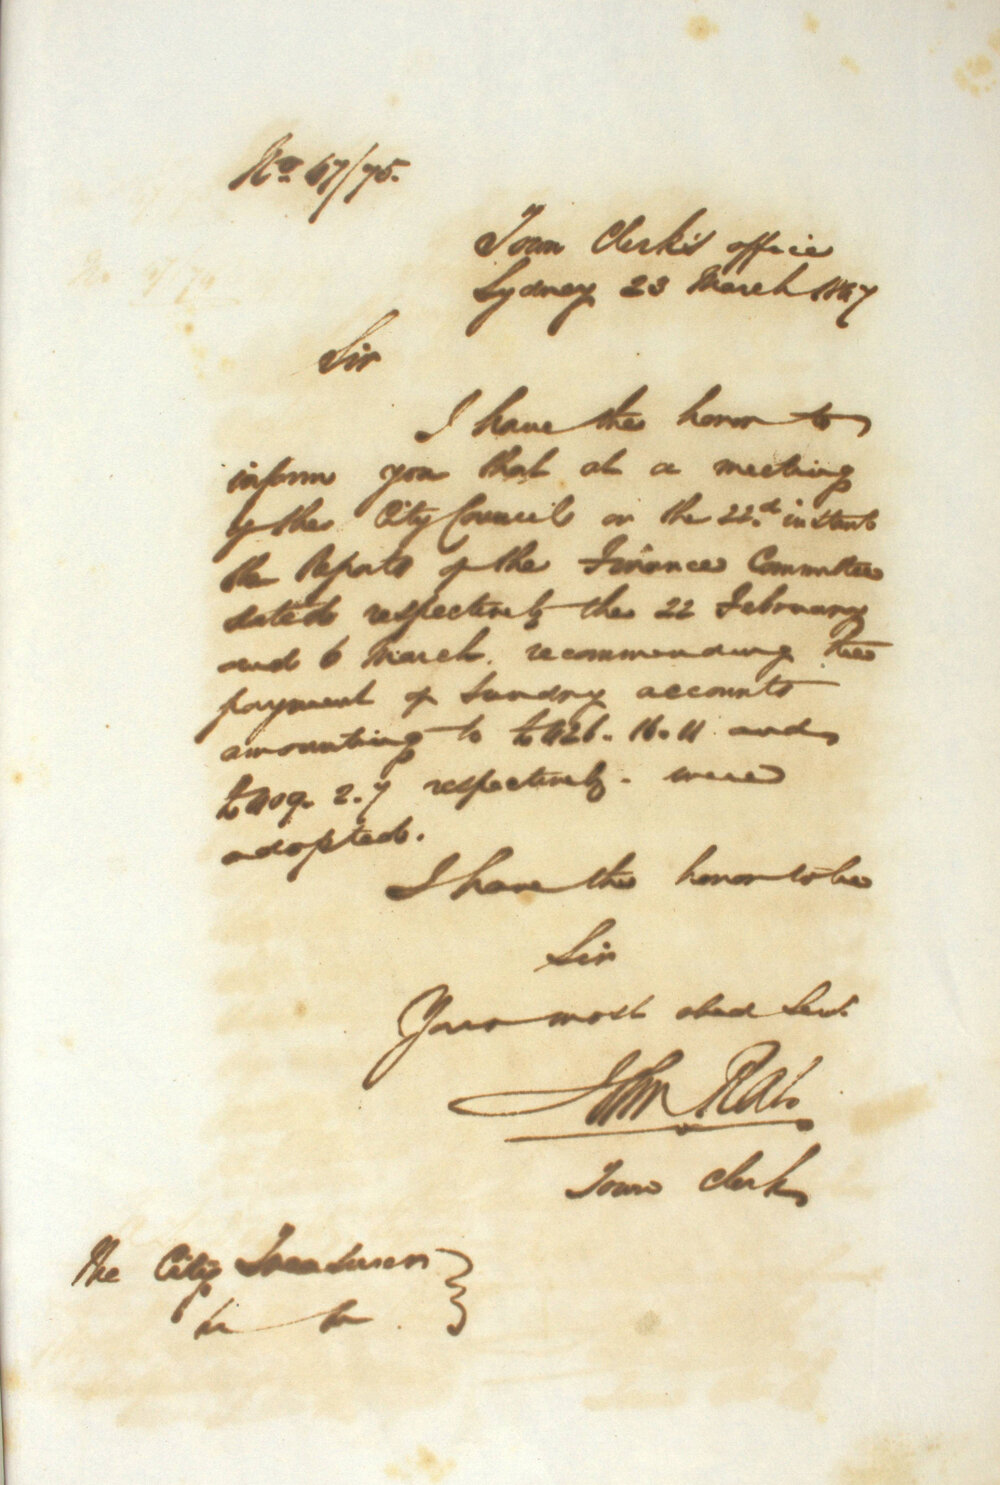 No. 47/75.
Town Clerk's office
Sydney 23 March 1847
Sir
I have the honor to
inform you that at a meeting
of the City Council on the 22.d instant
the Reports of the Finance Committee
dated respectively the 22 February
and 6 March recommending the
payment of Sundry accounts
amounting to 16. 11 and
2. 7 respectively. were
adopted.
I have the honor to be
Sir
Your most obed Servt
John Rae
Town Clerk
The City Treasurer